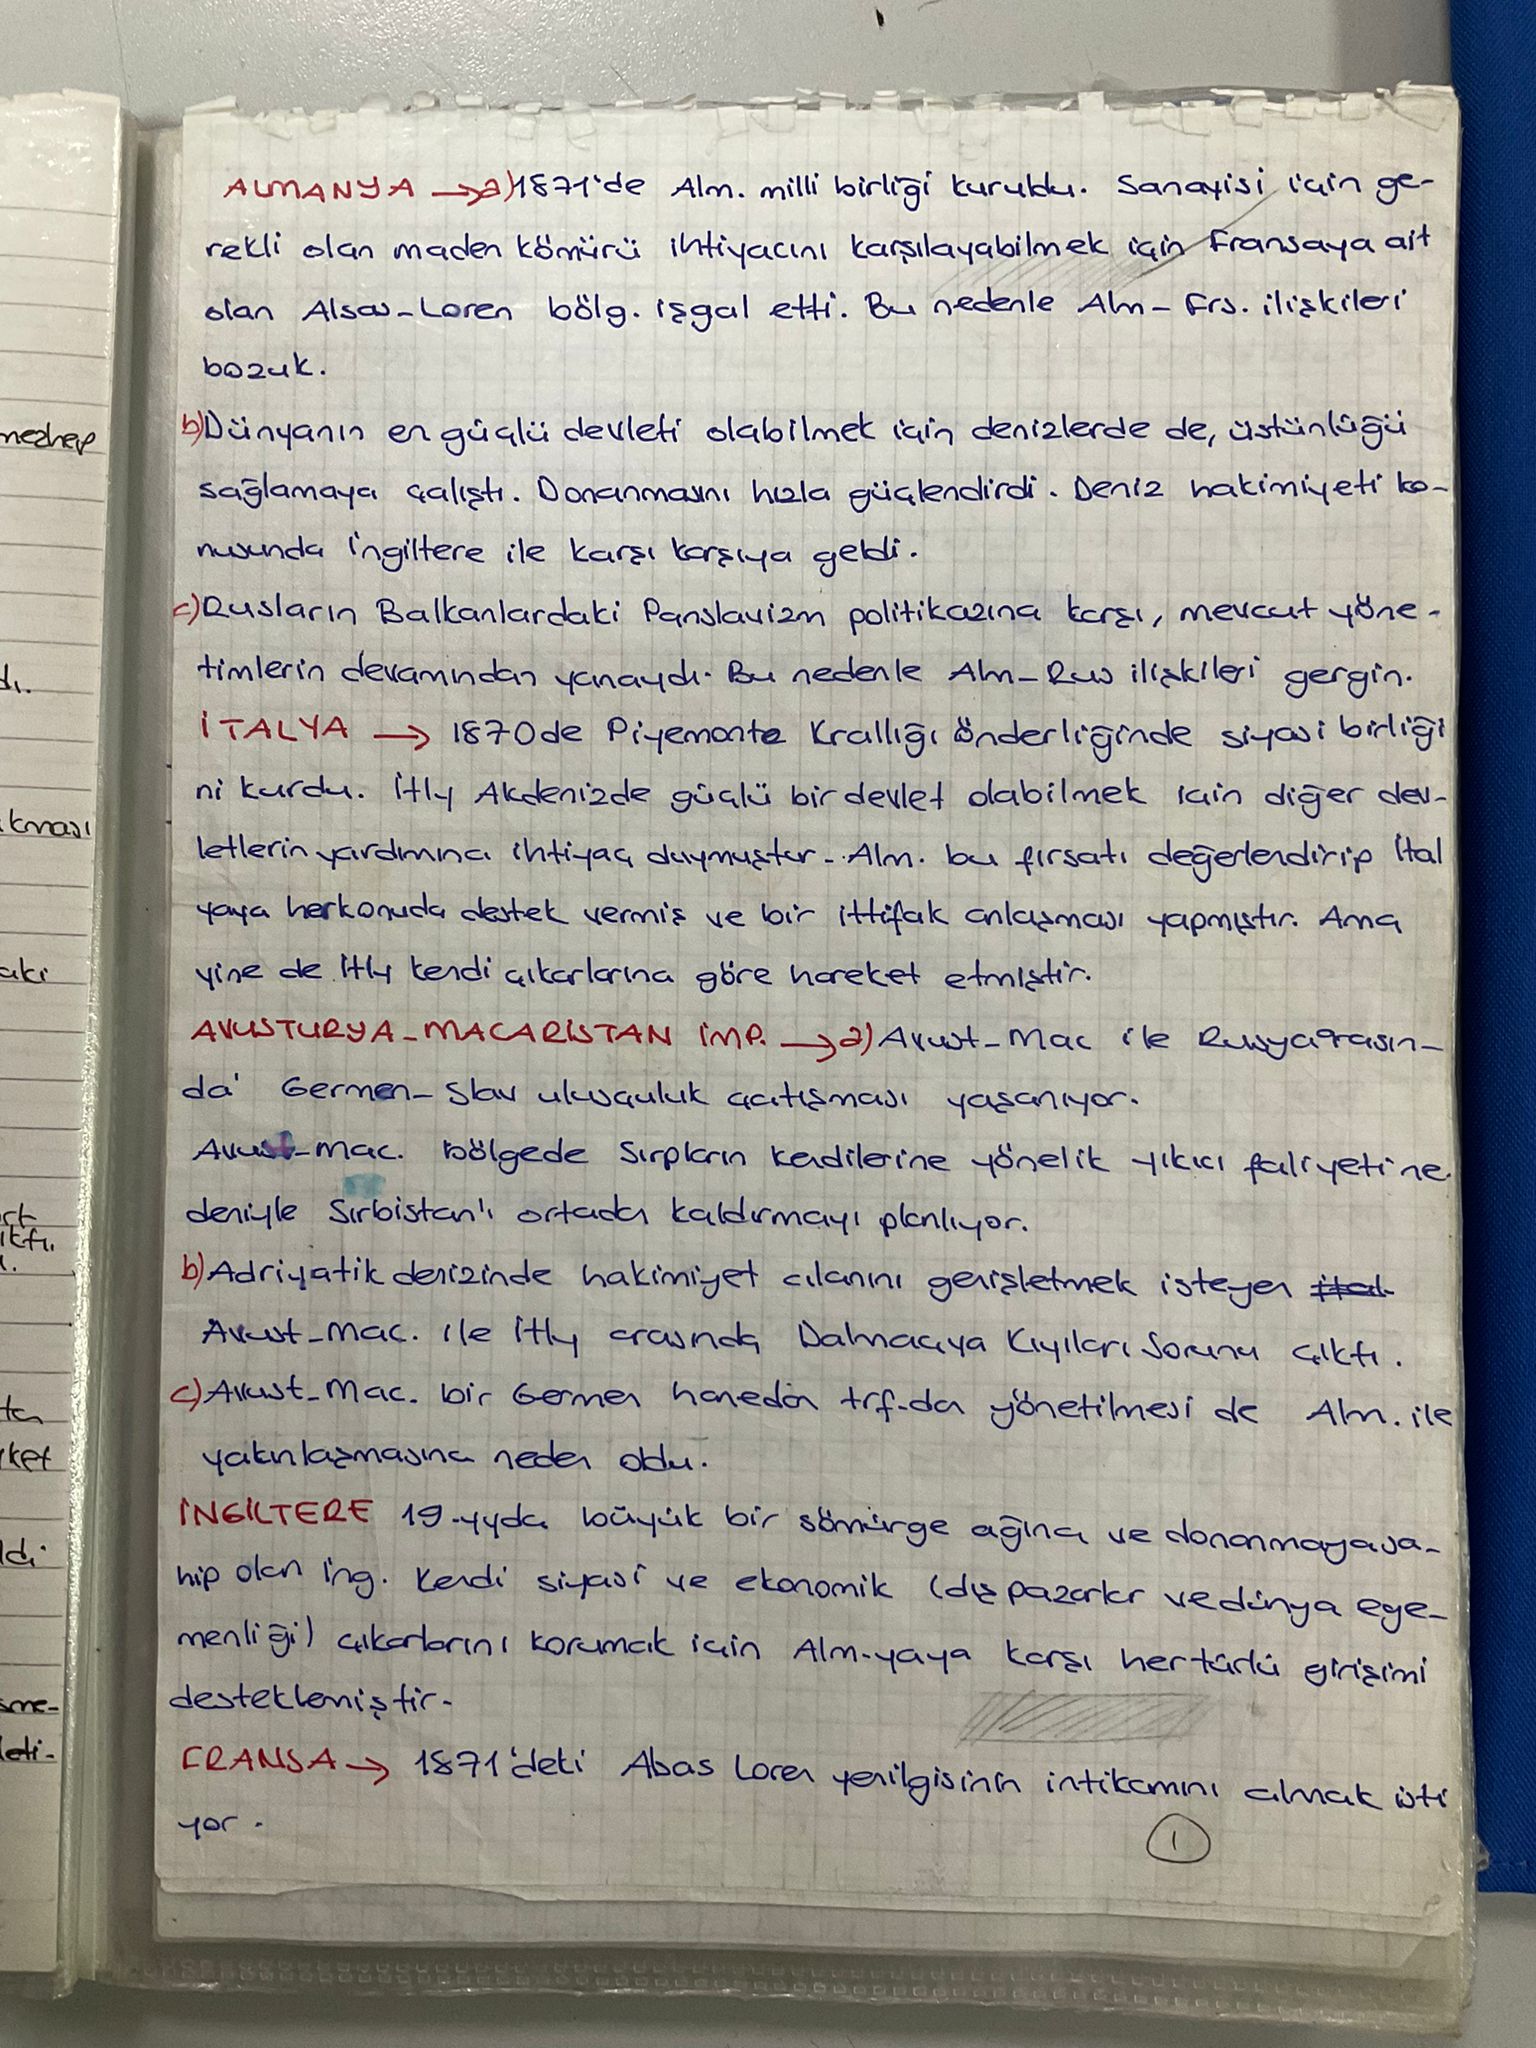 ALMANYA → a) 1871'de Alm. milli birliği kuruldu. Sanayisi için ge-
rekli olan maden kömürü ihtiyacını karşılayabilmek için Fransaya ait
olan Alsas-Loren bölg. işgal etti. Bu nedenle Alm-Frs. ilişkileri
bozuk.
b) Dünyanın en güçlü devleti olabilmek için denizlerde de, üstünlüğü
sağlamaya çalıştı. Donanmasını hızla güçlendirdi. Deniz hakimiyeti ko-
nusunda İngiltere ile karşı karşıya geldi.
c) Rusların Balkanlardaki Panslavizm politikasına karşı, mevcut yöne-
timlerin devamından yanaydı. Bu nedenle Alm-Rus ilişkileri gergin.
İTALYA → 1870de Piyemonte Krallığı önderliğinde siyasi birliği
ni kurdu. İtly Akdenizde güçlü bir devlet olabilmek için diğer dev-
letlerin yardımına ihtiyaç duymuştur. Alm. bu fırsatı değerlendirip İtal
yaya herkonuda destek vermiş ve bir ittifak anlaşması yapmıştır. Ama
yine de İtly kendi çıkarlarına göre hareket etmiştir.
AVUSTURYA-MACARİSTAN İMP. → a) Avust-Mac ile Rusya arasın-
da Germen-Slav ulusçuluk çatışması yaşanıyor.
Avust-Mac. bölgede Sırpların kendilerine yönelik yıkıcı faliyeti ne
deniyle Sırbistan'ı ortadan kaldırmayı planlıyor.
b) Adriyatik denizinde hakimiyet alanını genişletmek isteyen ital
Avust-Mac. ile İtly arasında Dalmaçya Kıyıları Sorunu çıktı.
c) Avust-Mac. bir Germen hanedan trf-dan yönetilmesi de Alm. ile
yakınlaşmasına neden oldu.
İNGİLTERE 19.yyda büyük bir sömürge ağına ve donanmaya sa-
hip olan İng. Kendi siyasi ve ekonomik (dış pazarlar ve dünya ege-
menliği) çıkarlarını korumak için Alm-yaya karşı her türlü girişimi
desteklemiştir.
FRANSA → 1871'deki Alsas Loren yenilgisinin intikamını almak isti
yor.
1
mezhep
dı.
kması
aki
ket
ldi
sme-
leti-